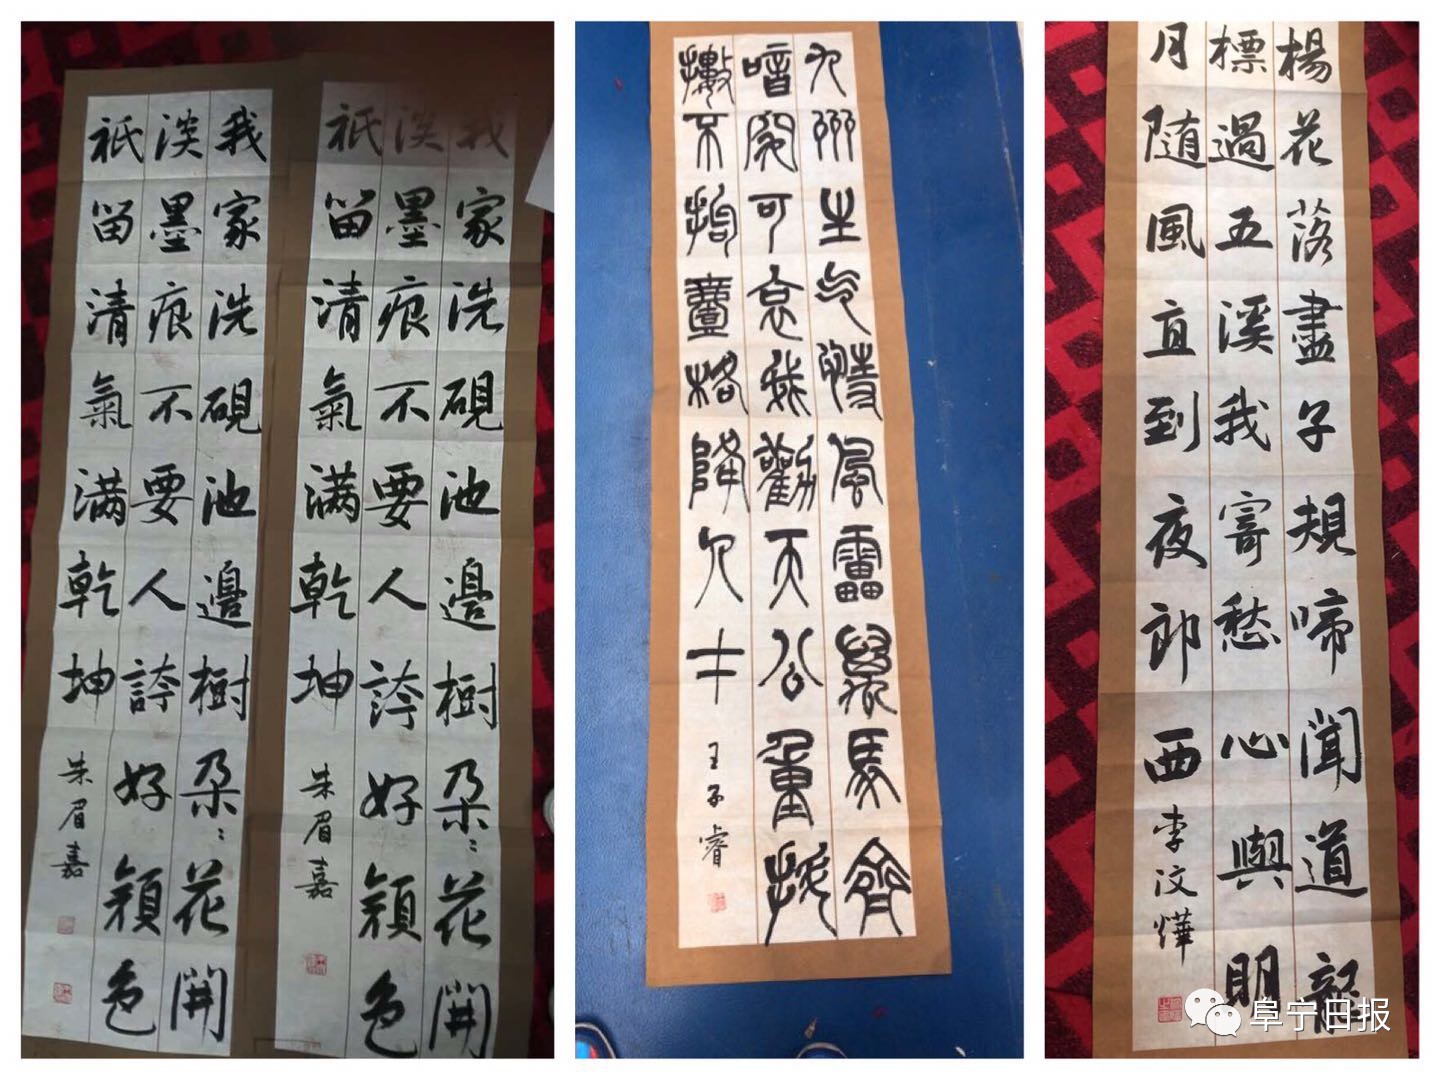 我家洗硯池邊樹朵〻花開
淡墨痕不要人誇好顔色
祇留清氣满乾坤
朱眉嘉
我家洗硯池邊樹朵〻花開
淡墨痕不要人誇好顔色
祇留清氣满乾坤
朱眉嘉
九州生气恃風靁萬馬齊
喑究可哀我勸天公重抖
擻不拘壹格降人才
王子睿
楊花落盡子規啼聞道龍
標過五溪我寄愁心與明
月随風直到夜郎西
李汶燁
阜宁日报